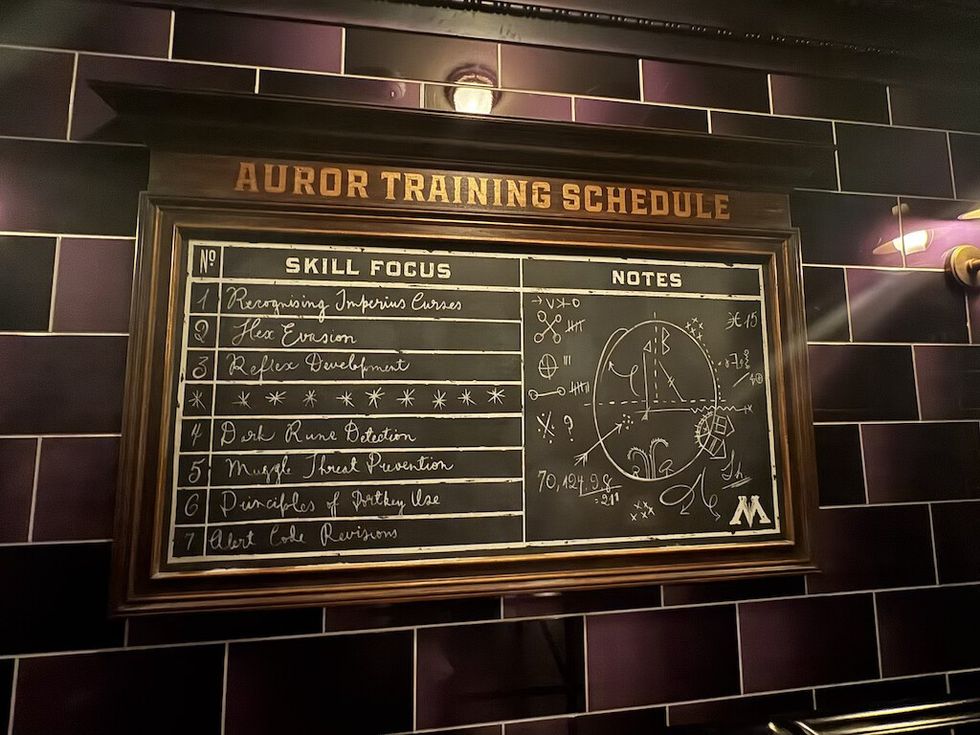 AUROR TRAINING SCHEDULE
Nº SKILL FOCUS NOTES
1 Recognising Imperius Curses
2 Hex Evasion
3 Reflex Development
4 Dark Rune Detection
5 Muggle Threat Prevention
6 Principles of Portkey Use
7 Alert Code Revisions
15
?
70,124.98
M